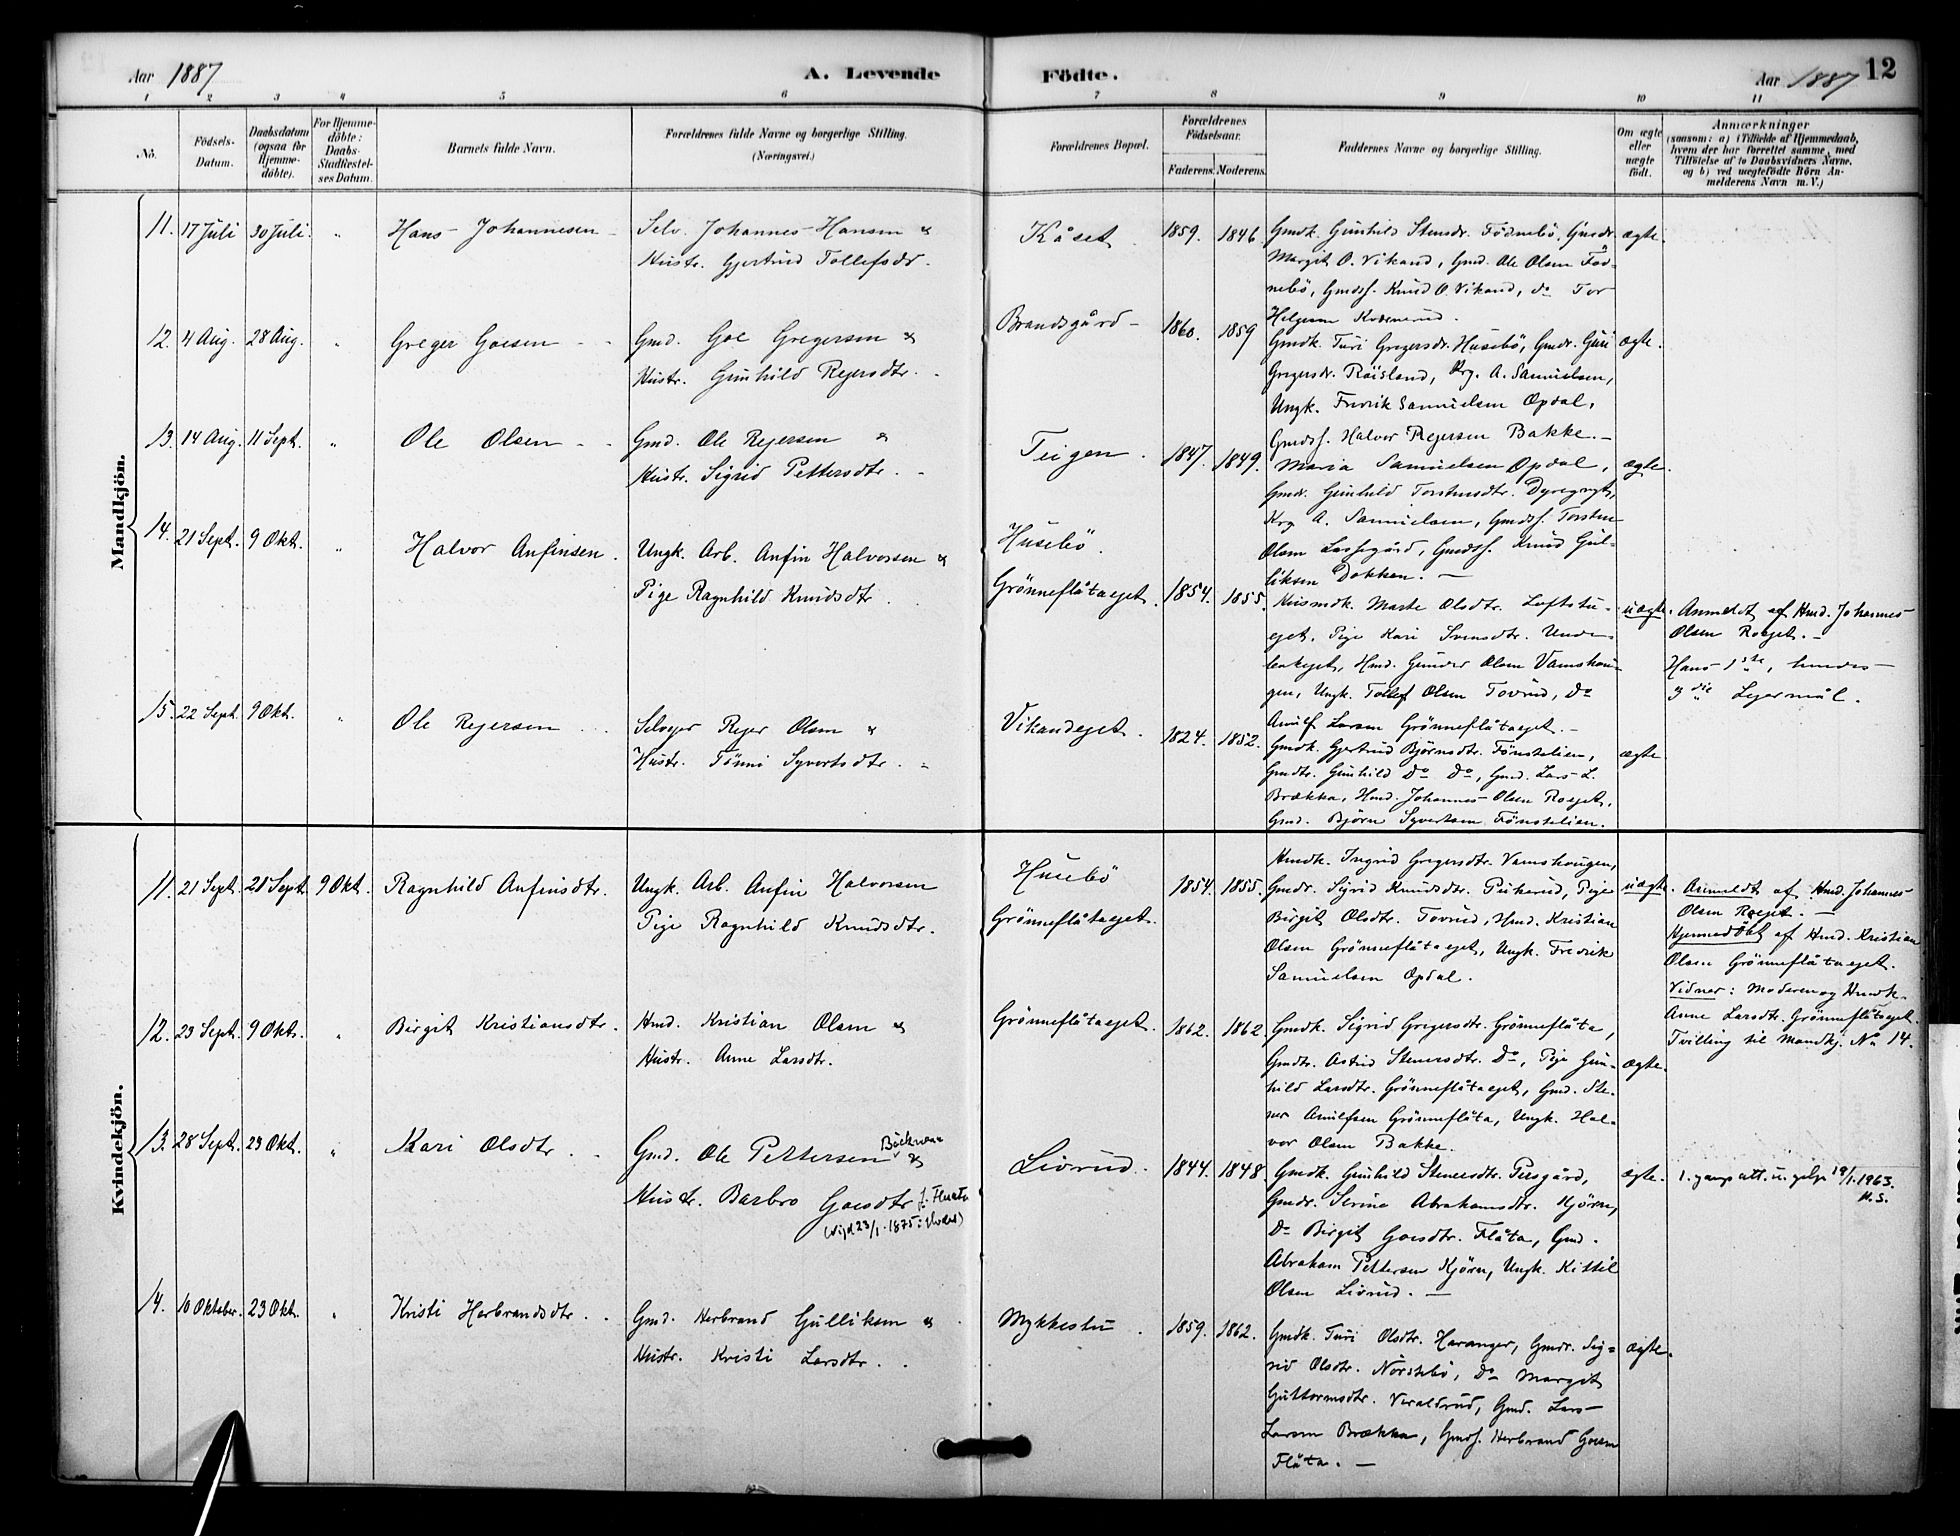 Aar 1887
A. Levende
Födte.
Aar 1887
12
1 2 3 4 5 6 7 8 9 10 11
No.
Födsels-
Datum.
Daabsdatum
(ogsaa for
Hjemme-
döbte).
For Hjemme-
döbte:
Daabs-
Stadfæstel-
ses Datum.
Barnets fulde Navn.
Forældrenes fulde Navne og borgerlige Stilling.
(Næringsvei.)
Forældrenes Bopæl.
Forældrenes
Födselsaar.
Faderens. Moderens.
Faddernes Navne og borgerlige Stilling.
Om ægte
eller
uægte
födt.
Anmærkninger
(saasom: a) i Tilfælde af Hjemmedaab,
hvem der har forrettet samme, med
Tilföielse af to Daabsvidners Navne,
og b) ved uægtefödte Börn An-
melderens Navn m. V.)
Mandkjön.
11. 17 Juli 30 Juli. "
Hans Johannesen
Selv. Johannes Hansen &
Hustr. Gjertrud Tollefsdr.
Kåset.
1859. 1846.
Gmdk. Gunhild Stensdr. Födnebö, Gmdr.
Margit O. Vikand, Gmd. Ole Olsen Föd-
nebö, Gmdss. Knud O. Vikand, do Tor
Helgesen
ægte.
12. 4 Aug. 28 Aug. "
Greger Goesen
Gmd. Goe Gregersen &
Hustr. Gunhild Rejersdtr.
Brandsgård
1860. 1859
Gmdk. Turi Gregersdr. Husebö, Gmdr. Guri
Gregersdr. Röisland, Krg. A. Samuelsen,
Ungk. Fredrik Samuelsen Opdal,
Gmdss. Halvor Rejersen Bakke.
ægte.
13. 14 Aug. 11 Sept. "
Ole Olsen
Gmd. Ole Rejersen &
Hustr. Sigrid Pettersdtr.
Teigen.
1847. 1849.
Maria Samuelsen Opdal,
Gmdr. Gunhild Torstensdtr.
Krg A. Samuelsen, Gmdss. Torsten
Olsen Lassegård, Gmdss. Knud Gul-
liksen Dokken.
ægte.
14. 21 Sept. 9 Okt. "
Halvor Anfinsen.
Ungk. Arb. Anfin Halvorsen &
Pige Ragnhild Knudsdtr.
Husebö.
Grönneflåtaeget.
1854. 1855.
Husmdk. Marte Olsdtr. Loftstu-
eget, Pige Kari Svensdtr. Unde
bakeget, Hmd. Gunder Olsen Vamshou-
gen, Ungk. Tollef Olsen Tovrud, Do
Arnulf Larsen Grönneflåtaeget.
uægte.
Anmeldt af Hmd. Johannes
Olsen Roeget.
Hans 1ste, hendes
3die Lejermål.
15. 22 Sept. 9 Okt. "
Ole Rejersen
Selvejer Rejer Olsen &
Hustr. Tönni Syvertsdtr.
Vikandeget.
1824. 1852.
Gmdk. Gjertrud Björnsdtr. Fönstelien,
Gmdtr. Gunhild Do Do, Gmd. Lars L.
Brækka, Hmd. Johannes Olsen Roeget,
Gmd. Björn Syvertsen Fönstelien.
ægte
Kvindekjön.
11. 21 Sept. 21 Sept. 9 Okt.
Ragnhild Anfinsdtr.
Ungk. Arb. Anfin Halvorsen
Pige Ragnhild Knudsdtr.
Husebö
Grönneflåtaeget.
1854. 1855.
Hmdk. Ingrid Gregersdtr. Vamshougen,
Gmdr. Sigrid Knudsdtr. Pukerud, Pige
Birgit Olsdtr. Tovrud, Hmd. Kristian
Olsen Grönneflåtaeget, Ungk. Fredrik
Samuelsen Opdal.
uægte.
Anmeldt af Hmd. Johannes
Olsen Roeget.
Hjemmedöbt af Hmd. Kristian
Olsen Grönneflåtaeget.
Vidner: Moderen og Hmdk.
Anne Larsdtr. Grönneflåtaeget.
Tvilling til Mandkj. No 14.
12. 23 Sept. 9 Okt. "
Birgit Kristiansdtr.
Hmd. Kristian Olsen &
Hustr. Anne Larsdtr.
Grönneflåtaeget.
1862. 1862
Gmdk. Sigrid Gregersdtr. Grönneflåta,
Gmdtr. Astrid Stenersdtr. Do, Pige Gun-
hild Larsdtr. Grönneflåtaeget, Gmd. Ste-
ner Arnulfsen Grönneflåta, Ungk. Hal-
vor Olsen Bakke.
ægte.
13. 28 Sept. 23 Okt. "
Kari Olsdtr.
Gmd. Ole Pettersen &
Hustr. Barbro Goesdtr
(vigd 23/1 1875)
Livrud.
1844. 1848.
Gmdk. Gunhild Stenersdtr. Persgård,
Gmdr. Serine Abrahamsdtr. Kjörn,
Do Birgit Goesdtr. Flåta, Gmd.
Abraham Pettersen Kjörn, Ungk. Kittil
Olsen Livrud.
ægte.
1. gangs att. u. gebyr 19/1.1963.
H.S.
14. 10 Oktober. 23 Okt. "
Kristi Herbrandsdtr.
Gmd. Herbrand Gulliksen &
Hustr. Kristi Larsdtr.
Mykkestu.
1859. 1862.
Gmdk. Turi Olsdtr. Haranger, Gmdr. Sig-
rid Olsdtr. Nörstebö, Do Margit
Guttormsdtr. Veraldrud, Gmd. Lars
Larsen Brækka, Gmdss. Herbrand Goesen
Flåta.
ægte.